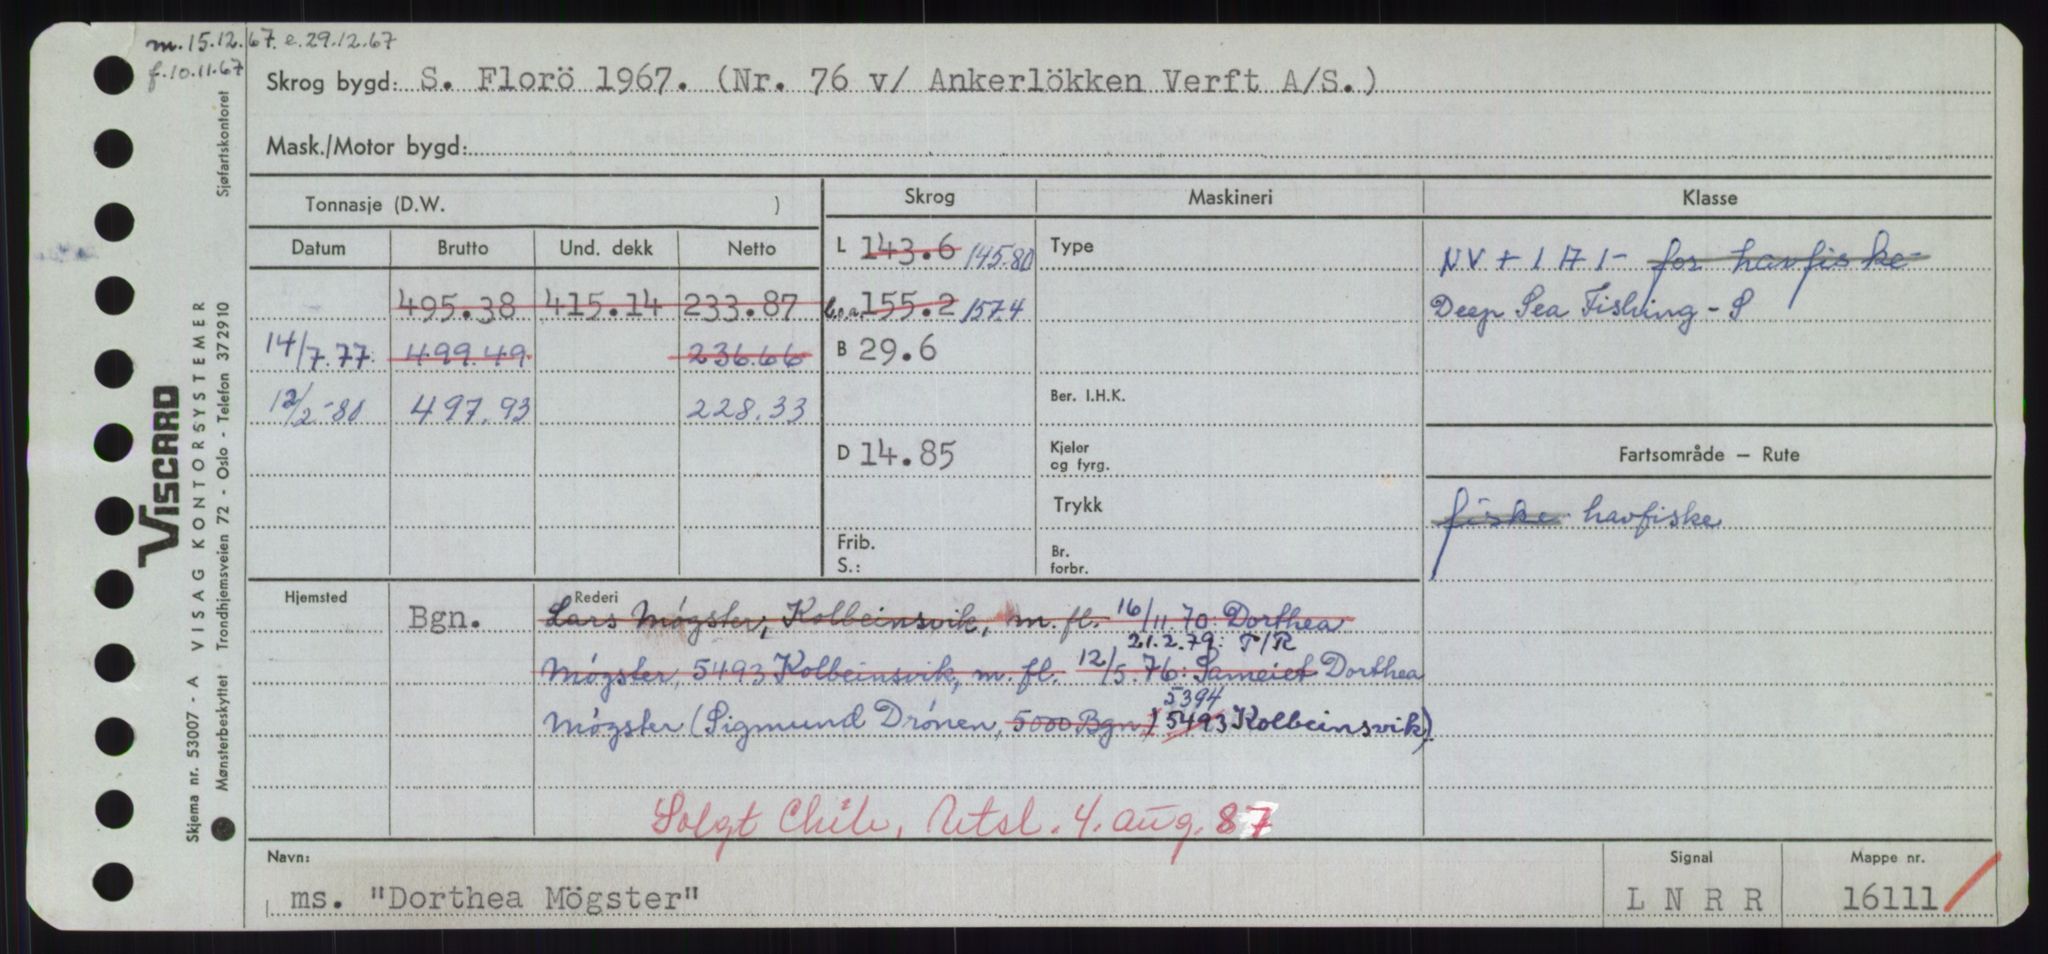 m. 15.12.67. e. 29.12.67
f. 10.11.67
Skrog bygd: S. Florö 1967. (Nr. 76 v/ Ankerlökken Verft A/S.)
Mask./Motor bygd:
Tonnasje (D.W. ) Skrog Maskineri Klasse
Datum Brutto Und. dekk Netto
L 143.6 145.80 Type NV + 1 A 1 - for havfiske
495.38 415.14 233.87 l.o.a. 155.2 157.4 Deep Sea Fishing - S
14/7.77. 499.49 236.66 B 29.6
12/2-80 497.93 228.33 Ber. I.H.K.
D 14.85 Kjeler og fyrg. Fartsområde — Rute
Trykk fiske havfiske
Frib.
S.: Br. forbr.
Hjemsted Rederi
Bgn. Lars Mógster, Kolbeinsvik, m. fl. 16/11.70: Dorthea
21.2.79: P/R
Mógster, 5493 Kolbeinsvik, m. fl. 12/5.76: Sameiet Dorthea
5394
Mógster (Sigmund Drónen, 5000 Bgn.) 5493 Kolbeinsvik)
Solgt Chile, Utsl. 4. aug. 87
Navn: Signal Mappe nr.
ms. "Dorthea Mögster" L N R R 16111
Sjøfartskontoret
VISCARD
Skjema nr. 53007 - A VISAG KONTORSYSTEMER
Mønsterbeskyttet Trondhjemsveien 72 - Oslo - Telefon 372910